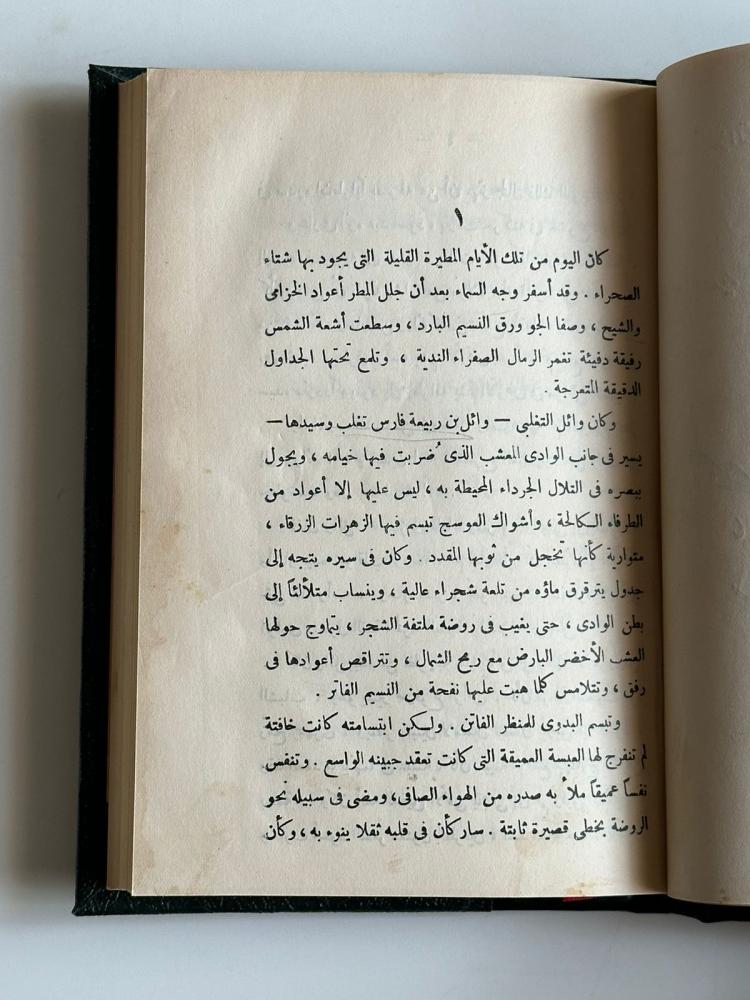 ١
كان اليوم من تلك الأيام المطيرة القليلة التى يجود بها شتاء
الصحراء . وقد أسفر وجه السماء بعد أن جلل المطر أعواد الخزامى
والشيح ، وصفا الجو ورق النسيم البارد ، وسطعت أشعة الشمس
رفيقة دفيئة تغمر الرمال الصفراء الندية ، وتلمع تحتها الجداول
الدقيقة المتعرجة .
وكان وائل التغلبى — وائل بن ربيعة فارس تغلب وسيدها —
يسير فى جانب الوادى المعشب الذى ضُربت فيها خيامه ، ويجول
ببصره فى التلال الجرداء المحيطة به ، ليس عليها إلا أعواد من
الطرفاء الكالحة ، وأشواك العوسج تبسم فيها الزهرات الزرقاء ،
متوارية كأنها تخجل من ثوبها المقدد . وكان فى سيره يتجه إلى
جدول يترقرق ماؤه من تلعة شجراء عالية ، وينساب متلألئاً إلى
بطن الوادى ، حتى يغيب فى روضة ملتفة الشجر ، يتماوج حولها
العشب الأخضر البارض مع ريح الشمال ، وتتراقص أعوادها فى
رفق ، وتتلامس كلما هبت عليها نفحة من النسيم الفاتر .
وتبسم البدوى للمنظر الفاتن . ولكن ابتسامته كانت خافتة
لم تنفرج لها العبسة العميقة التى كانت تعقد جبينه الواسع . وتنفس
نفساً عميقاً ملأ به صدره من الهواء الصافى، ومضى فى سبيله نحو
الروضة بخطى قصيرة ثابتة . سار كأن فى قلبه ثقلا ينوء به ، وكأن